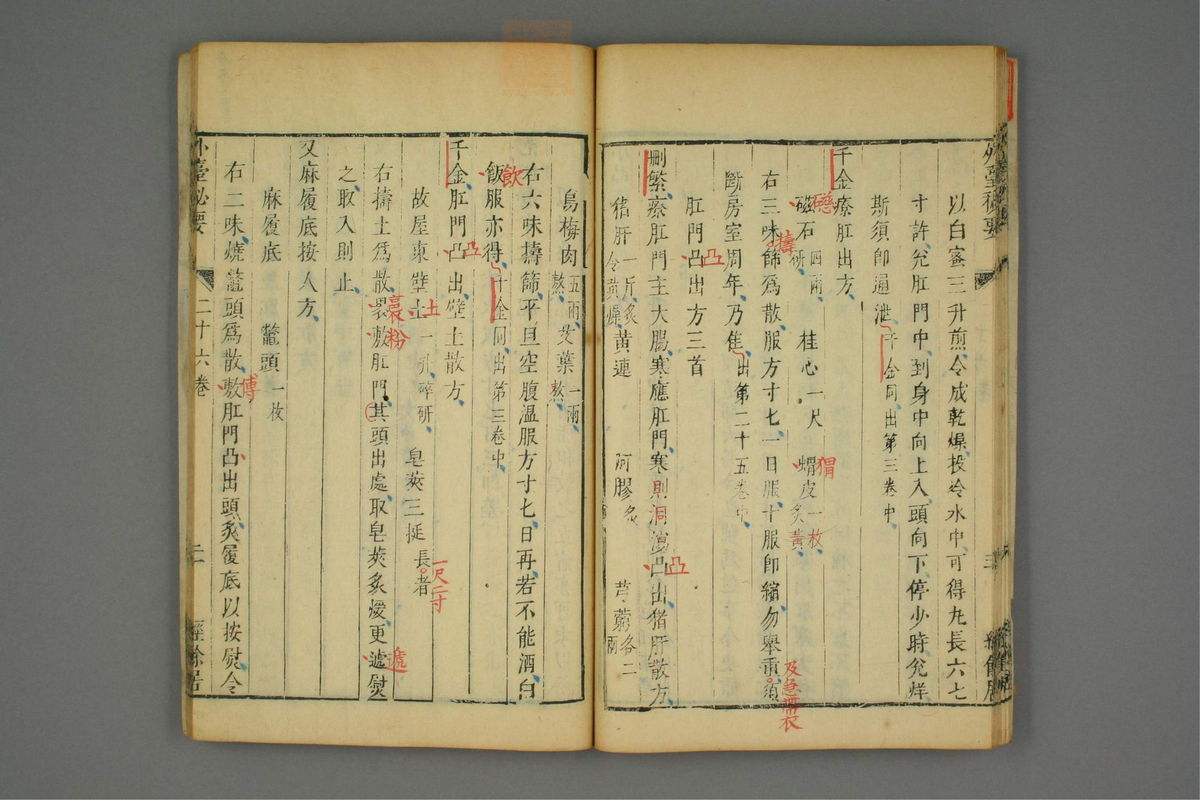 以白蜜三升煎令成乾燥投冷水中可得九長六七
寸許兊肛門中到身中向上入頭向下停少時兊烊
斯須卽通泄千金同出第三卷中
千金療肛出方
磁石四兩研 桂心一尺 蝟皮一枚炙黃
右三味篩爲散服方寸七一日服十服卽縮勿舉重須
斷房室周年乃佳出第二十五卷中
肛門凸出方三首
刪繁療肛門主大腸寒應肛門寒則洞瀉凸出猪肝散方
猪肝一斤炙令黃燥 黃連 阿膠炙 芎藭各二兩
烏梅肉五兩熬 艾葉一兩熬
右六味擣篩平旦空腹溫服方寸七日再若不能酒白
飯服亦得千金同出第三卷中
千金肛門凸出壁土散方
故屋東壁土一升碎研 皂莢三挺長者
右擣土爲散裹敷肛門其頭出處取皂莢炙煖更遞熨
之取入則止
又麻履底按人方
麻履底 鼈頭一枚
右二味燒鼈頭爲散敷肛門凸出頭炙履底以按熨令
外臺秘要 二十六卷 經餘居
磁
擣
猬
及急帶衣
凸
凸
飲
凸
土
一尺二寸
粉
遞
傅